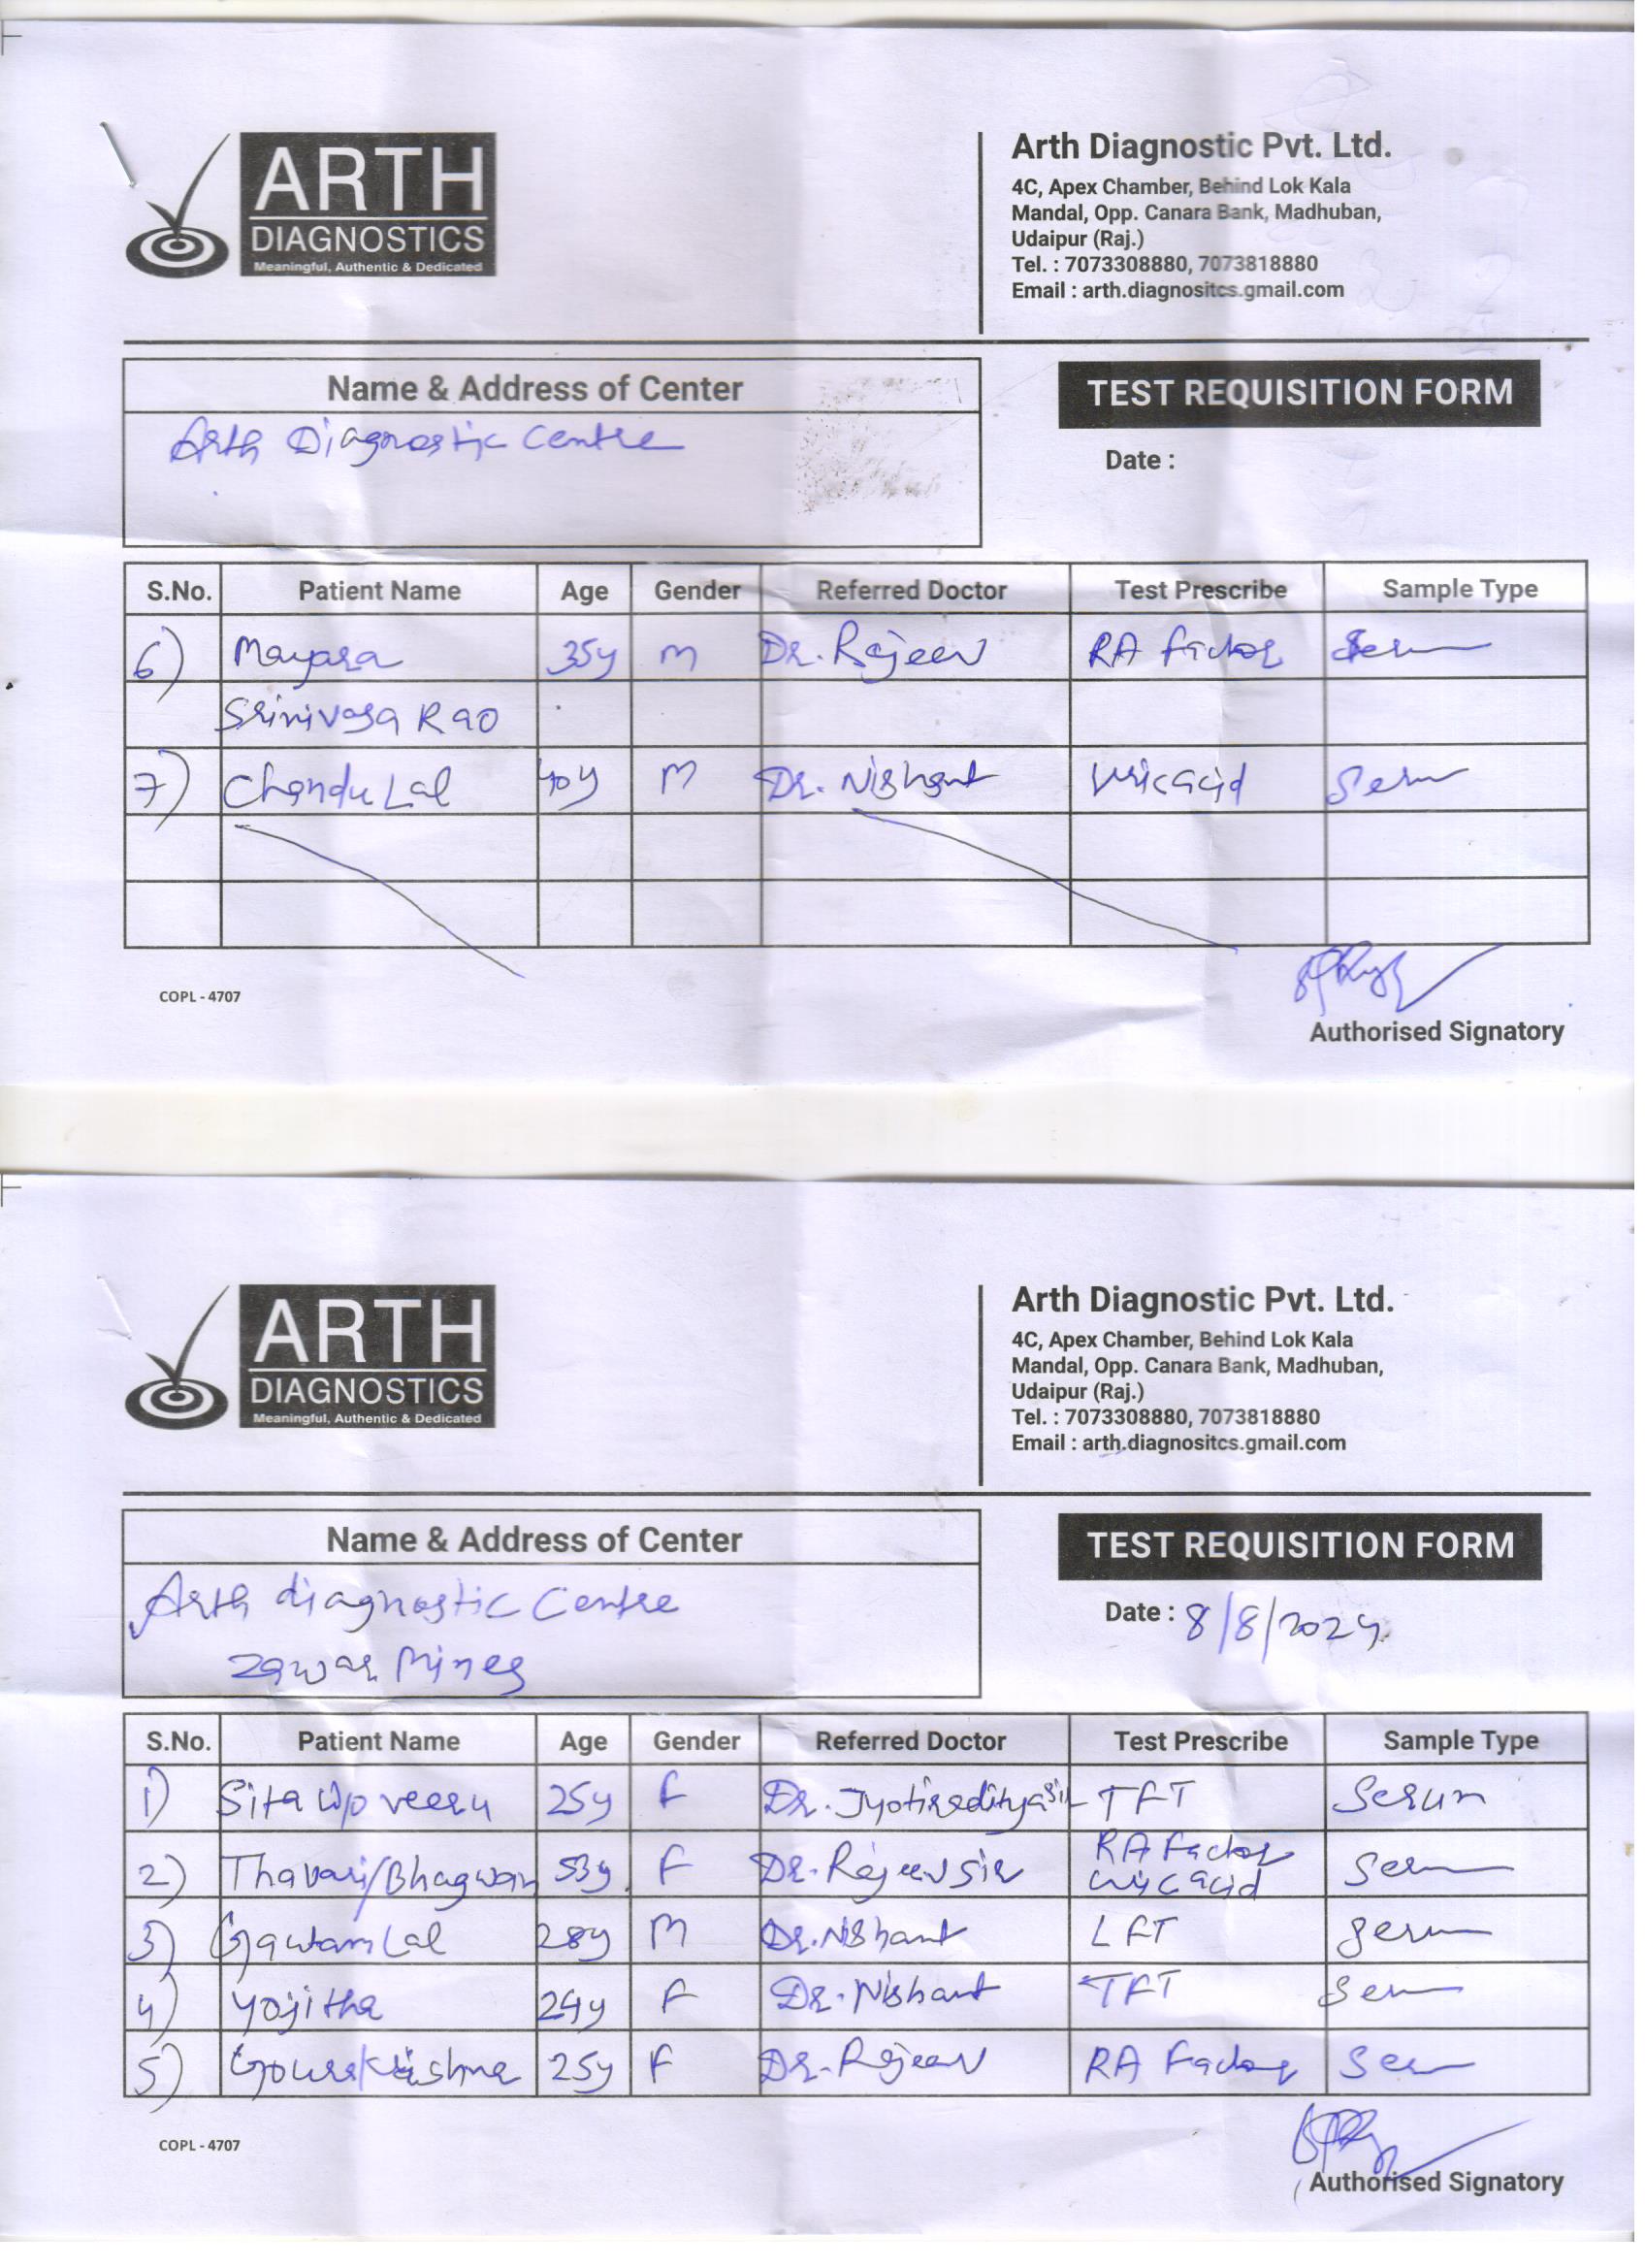 ARTH
DIAGNOSTICS
Meaningful, Authentic & Dedicated
Arth Diagnostic Pvt. Ltd.
4C, Apex Chamber, Behind Lok Kala
Mandal, Opp. Canara Bank, Madhuban,
Udaipur (Raj.)
Tel. : 7073308880, 7073818880
Email : arth.diagnositcs.gmail.com
Name & Address of Center
Arth Diagnostic Centre
TEST REQUISITION FORM
Date :
S.No. Patient Name Age Gender Referred Doctor Test Prescribe Sample Type
6) Mayara 35y M Dr. Rajeev RA factor Serum
Srinivasa Rao
7) Chandu Lal 40y M Dr. Nishant Uric acid Serum
COPL - 4707
Authorised Signatory
ARTH
DIAGNOSTICS
Meaningful, Authentic & Dedicated
Arth Diagnostic Pvt. Ltd.
4C, Apex Chamber, Behind Lok Kala
Mandal, Opp. Canara Bank, Madhuban,
Udaipur (Raj.)
Tel. : 7073308880, 7073818880
Email : arth.diagnositcs.gmail.com
Name & Address of Center
Arth diagnostic Centre
Zawar Mines
TEST REQUISITION FORM
Date : 8/8/2024
S.No. Patient Name Age Gender Referred Doctor Test Prescribe Sample Type
1) Sita W/o veeru 25y F Dr. Jyotiraditya sir TFT Serum
2) Thavari/Bhagwan 53y F Dr. Rajeev sir RA Factor Serum
uric acid
3) Gautam Lal 28y M Dr. Nishant LFT Serum
4) Yojitha 24y F Dr. Nishant TFT Serum
5) 25y F Dr. Rajeev RA Factor Serum
COPL - 4707
Authorised Signatory